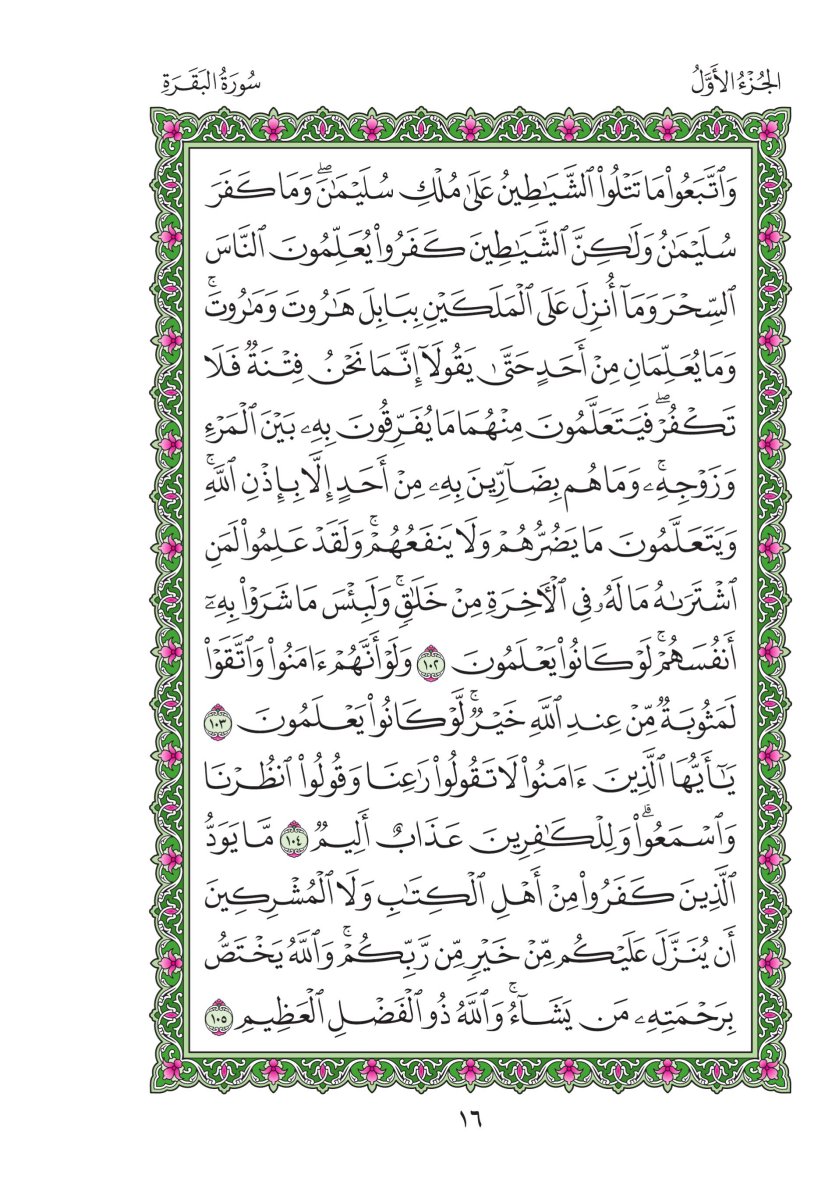 الجُزْءُ الأَوَّلُ
سُورَةُ البَقَرَةِ
وَٱتَّبَعُواْ مَا تَتْلُواْ ٱلشَّيَٰطِينُ عَلَىٰ مُلْكِ سُلَيْمَٰنَۖ وَمَا كَفَرَ
سُلَيْمَٰنُ وَلَٰكِنَّ ٱلشَّيَٰطِينَ كَفَرُواْ يُعَلِّمُونَ ٱلنَّاسَ
ٱلسِّحْرَ وَمَآ أُنزِلَ عَلَى ٱلْمَلَكَيْنِ بِبَابِلَ هَٰرُوتَ وَمَٰرُوتَۚ
وَمَا يُعَلِّمَانِ مِنْ أَحَدٍ حَتَّىٰ يَقُولَآ إِنَّمَا نَحْنُ فِتْنَةٌ فَلَا
تَكْفُرْۖ فَيَتَعَلَّمُونَ مِنْهُمَا مَا يُفَرِّقُونَ بِهِۦ بَيْنَ ٱلْمَرْءِ
وَزَوْجِهِۦۚ وَمَا هُم بِضَآرِّينَ بِهِۦ مِنْ أَحَدٍ إِلَّا بِإِذْنِ ٱللَّهِۚ
وَيَتَعَلَّمُونَ مَا يَضُرُّهُمْ وَلَا يَنفَعُهُمْۚ وَلَقَدْ عَلِمُواْ لَمَنِ
ٱشْتَرَىٰهُ مَا لَهُۥ فِى ٱلْأٓخِرَةِ مِنْ خَلَٰقٍۚ وَلَبِئْسَ مَا شَرَوْاْ بِهِۦٓ
أَنفُسَهُمْۚ لَوْ كَانُواْ يَعْلَمُونَ ١٠٢ وَلَوْ أَنَّهُمْ ءَامَنُواْ وَٱتَّقَوْاْ
لَمَثُوبَةٌ مِّنْ عِندِ ٱللَّهِ خَيْرٌۚ لَّوْ كَانُواْ يَعْلَمُونَ ١٠٣
يَٰٓأَيُّهَا ٱلَّذِينَ ءَامَنُواْ لَا تَقُولُواْ رَٰعِنَا وَقُولُواْ ٱنظُرْنَا
وَٱسْمَعُواْۗ وَلِلْكَٰفِرِينَ عَذَابٌ أَلِيمٌ ١٠٤ مَّا يَوَدُّ
ٱلَّذِينَ كَفَرُواْ مِنْ أَهْلِ ٱلْكِتَٰبِ وَلَا ٱلْمُشْرِكِينَ
أَن يُنَزَّلَ عَلَيْكُم مِّنْ خَيْرٍ مِّن رَّبِّكُمْۚ وَٱللَّهُ يَخْتَصُّ
بِرَحْمَتِهِۦ مَن يَشَآءُۚ وَٱللَّهُ ذُو ٱلْفَضْلِ ٱلْعَظِيمِ ١٠٥
١٦